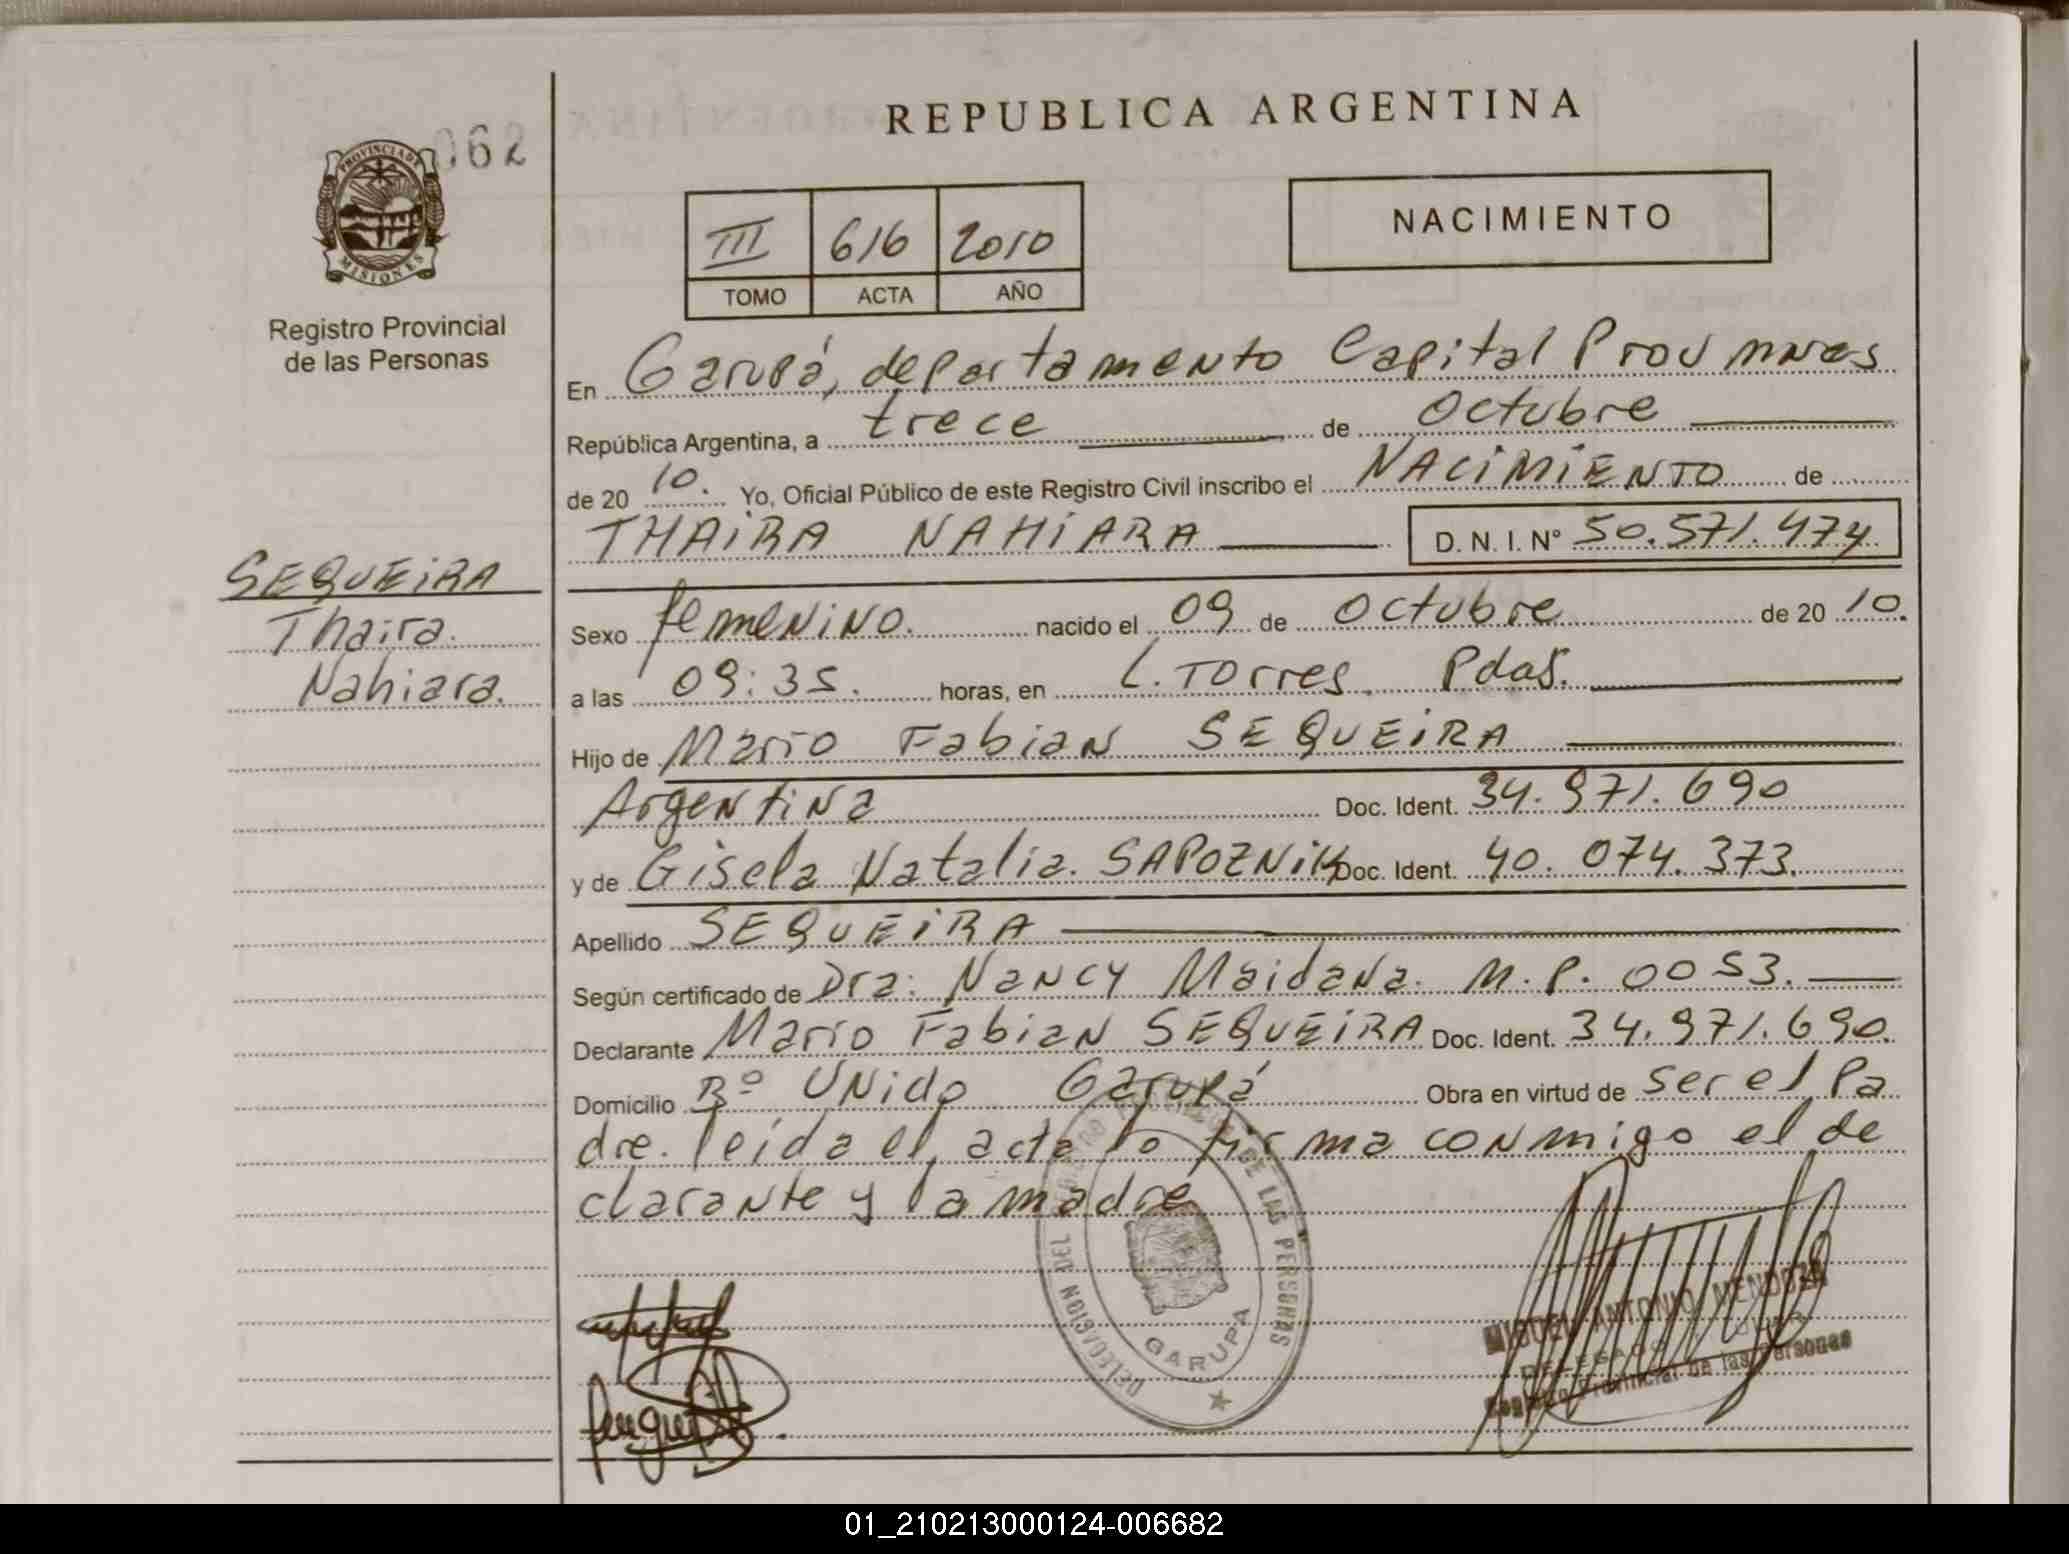 REPUBLICA ARGENTINA
062
PROVINCIA DE
MISIONES
Registro Provincial
de las Personas
III 616 2010
TOMO ACTA AÑO
NACIMIENTO
En Garupá, departamento Capital Prov mnes
República Argentina, a trece de Octubre
de 20 10. Yo, Oficial Público de este Registro Civil inscribo el NACIMIENTO de
THAIRA NAHIARA D. N. I. N° 50.571.474
SEQUEIRA
Thaira.
Nahiara.
Sexo femenino. nacido el 09 de Octubre de 20 10.
a las 09:35. horas, en L. Torres Pdas.
Hijo de Mario Fabian SEQUEIRA
Argentina Doc. Ident. 34.971.690
y de Gisela Natalia. SAPOZNIK Doc. Ident. 40.074.373.
Apellido SEQUEIRA
Según certificado de Dra: Nancy Maidana. M.P. 0053.
Declarante Mario Fabian SEQUEIRA Doc. Ident. 34.971.690.
Domicilio Bº Unido Garupá Obra en virtud de ser el Pa
dre. leida el acta lo firma conmigo el de
clarante y la madre
DELEGACION DEL REGISTRO DE LAS PERSONAS
GARUPA
MIGUEL ANTONIO MENDOZA
DELEGADO
Registro Provincial de las Personas
01_210213000124-006682